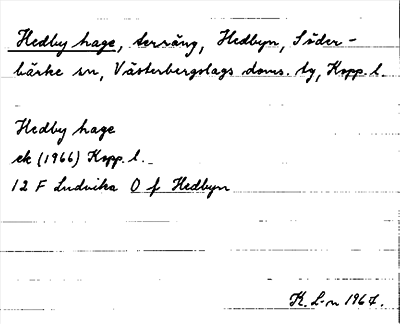 Hedby hage, terräng, Hedbyn, Söder-
bärke sn, Västerbergslags doms. tg, Kopp. l.
Hedby hage
ek (1966) Kopp. l.
12 F Ludvika O f Hedbyn
K. L-n 1967.